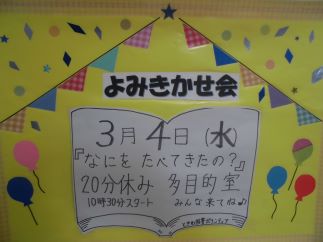 よみきかせ会
3月4日(水)
『なにを たべてきたの?』
20分休み 多目的室
10時30分スタート みんな来てね♪